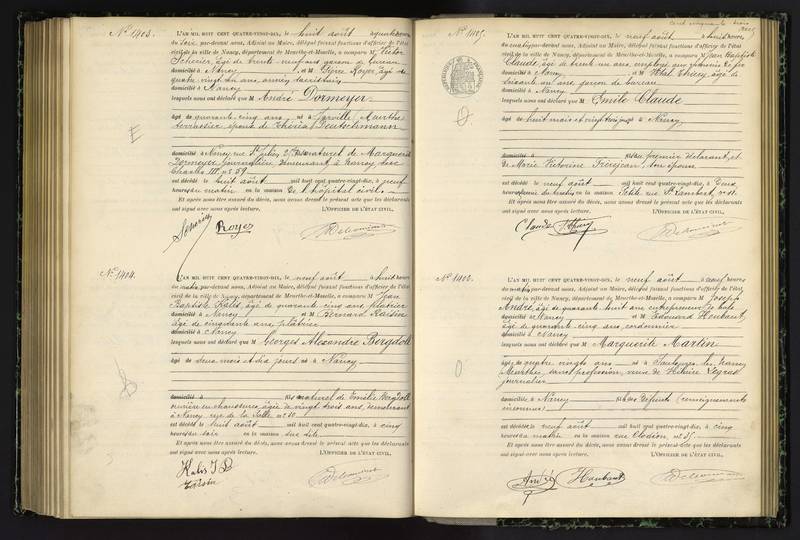 N° 1403.
L'AN MIL HUIT CENT QUATRE-VINGT-DIX, le huit août à quatre heures
du soir, par-devant nous, Adjoint au Maire, délégué faisant fonctions d'officier de l'état
civil de la ville de Nancy, département de Meurthe-et-Moselle, a comparu M. Victor
âgé de trente neuf ans, garçon de bureau
domicilié à Nancy et M. Pierre Royer, âgé de
quatre vingt dix ans, ancien sacristain
domicilié à Nancy
lesquels nous ont déclaré que M André Dormeyer
âgé de quarante cinq ans né à Jarville, Meurthe
terrassier, époux de Thérèse Deutschmann
domicilié à Nancy, rue St Julien, fils naturel de Marguerite
Dormeyer, journalière, demeurant à Nancy rue
Charles III, n° 59
est décédé le huit août mil huit cent quatre-vingt-dix, à neuf
heures du matin en la maison de l'hôpital civil.
Et après nous être assuré du décès, nous avons dressé le présent acte que les déclarants
ont signé avec nous après lecture. L'OFFICIER DE L'ÉTAT CIVIL,
Royer
N° 1404.
L'AN MIL HUIT CENT QUATRE-VINGT-DIX, le neuf août à huit heures
du matin, par-devant nous, Adjoint au Maire, délégué faisant fonctions d'officier de l'état
civil de la ville de Nancy, département de Meurthe-et-Moselle, a comparu M. Jean
Baptiste Kalis, âgé de quarante cinq ans, plâtrier
domicilié à Nancy et M. Bernard
âgé de cinquante ans, plâtrier
domicilié à Nancy
lesquels nous ont déclaré que M Georges Alexandre Bergdoll
âgé de deux mois et dix jours né à Nancy
domicilié à fils naturel de Emélie Bergdoll
ouvrière en chaussures, âgée de vingt trois ans, demeurant
à Nancy rue de la Salle n° 10
est décédé le huit août mil huit cent quatre-vingt-dix, à cinq
heures du soir en la maison sus dite
Et après nous être assuré du décès, nous avons dressé le présent acte que les déclarants
ont signé avec nous après lecture. L'OFFICIER DE L'ÉTAT CIVIL,
Kalis J B
Cent cinquante trois
N° 1405.
L'AN MIL HUIT CENT QUATRE-VINGT-DIX, le neuf août à huit heures
du matin, par-devant nous, Adjoint au Maire, délégué faisant fonctions d'officier de l'état
civil de la ville de Nancy, département de Meurthe-et-Moselle, a comparu M. Jean Baptiste
Claude, âgé de trente un ans, employé aux chemins de fer
domicilié à Nancy et M. Thiéry, âgé de
soixante un ans, garçon de bureau
domicilié à Nancy
lesquels nous ont déclaré que M Emile Claude
âgé de huit mois et vingt trois jours né à Nancy
domicilié à fils du premier déclarant, et
de Marie Victorine son épouse
est décédé le neuf août mil huit cent quatre-vingt-dix, à deux
heures du matin en la maison Petite rue St Lambert, n°
Et après nous être assuré du décès, nous avons dressé le présent acte que les déclarants
ont signé avec nous après lecture. L'OFFICIER DE L'ÉTAT CIVIL,
Claude Thiéry
N° 1406.
L'AN MIL HUIT CENT QUATRE-VINGT-DIX, le neuf août à neuf heures
du matin, par-devant nous, Adjoint au Maire, délégué faisant fonctions d'officier de l'état
civil de la ville de Nancy, département de Meurthe-et-Moselle, a comparu M. Joseph
André, âgé de quarante huit ans, entrepreneur de bals
domicilié à Nancy et M. Edouard Houbaut,
âgé de quarante cinq ans, cordonnier
domicilié à Nancy
lesquels nous ont déclaré que M Marguerite Martin
âgée de quatre vingts ans née à Saulxures-les-Nancy
Meurthe, sans profession, veuve de Hilaire Legras
journalier
domicilié à Nancy fille de défunts (renseignements
inconnus)
est décédée le neuf août mil huit cent quatre-vingt-dix, à cinq
heures du matin en la maison rue Clodion, n° 25
Et après nous être assuré du décès, nous avons dressé le présent acte que les déclarants
ont signé avec nous après lecture. L'OFFICIER DE L'ÉTAT CIVIL,
André Houbaut